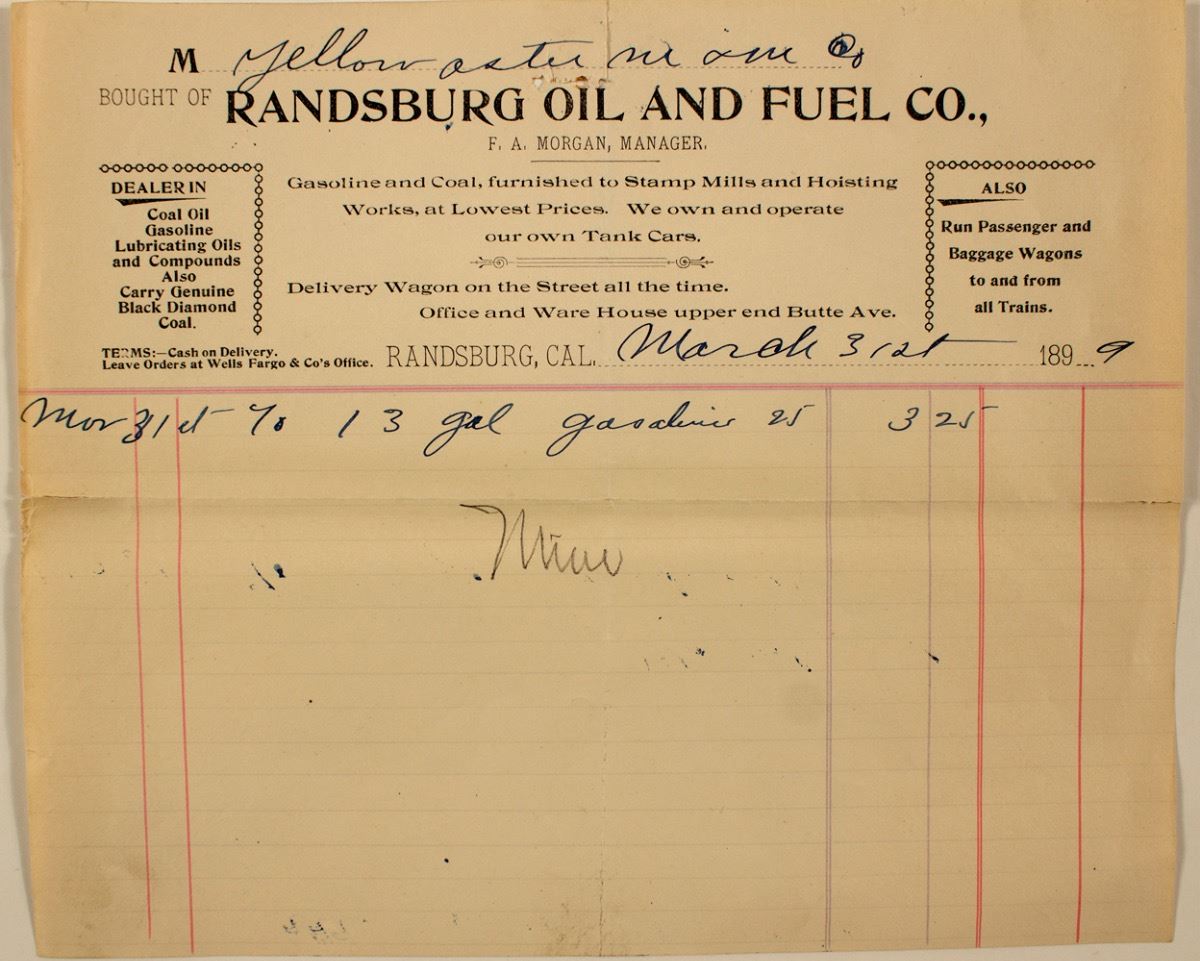 M Yellow aster M & M Co
BOUGHT OF RANDSBURG OIL AND FUEL CO.,
F. A. MORGAN, MANAGER.
DEALER IN
Coal Oil
Gasoline
Lubricating Oils
and Compounds
Also
Carry Genuine
Black Diamond
Coal.
Gasoline and Coal, furnished to Stamp Mills and Hoisting
Works, at Lowest Prices. We own and operate
our own Tank Cars.
Delivery Wagon on the Street all the time.
Office and Ware House upper end Butte Ave.
ALSO
Run Passenger and
Baggage Wagons
to and from
all Trains.
TERMS:—Cash on Delivery.
Leave Orders at Wells Fargo & Co's Office.
RANDSBURG, CAL. March 31st 1899
Mar 31st To 13 gal gasoline 25 3 25
Mine